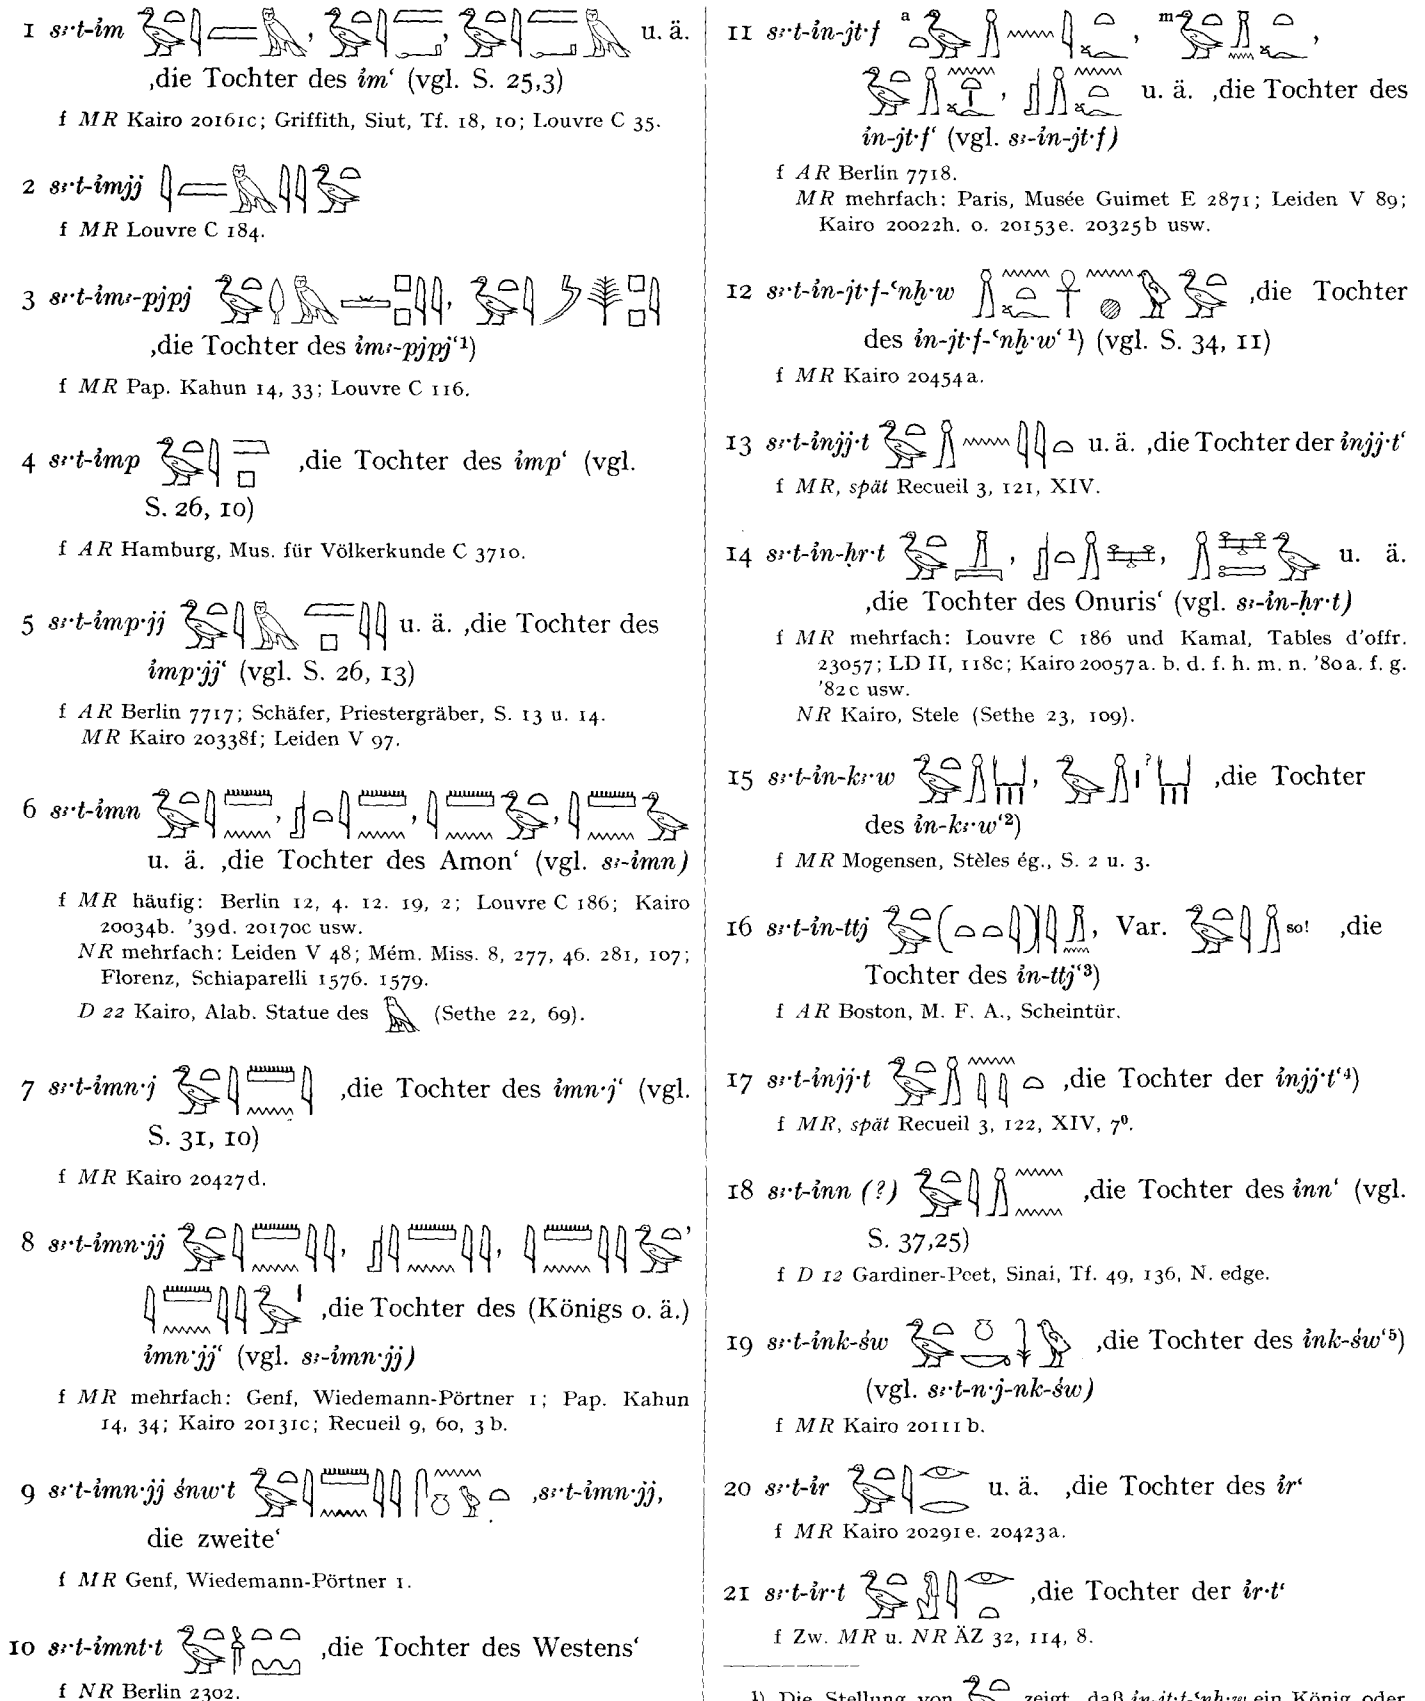 1 sꜣ·t-im 𓅭𓏏𓇋𓐛𓅓, 𓅭𓏏𓇋𓐛𓂝, 𓅭𓏏𓇋𓐛𓂝𓅓 u. ä.
‚die Tochter des im‘ (vgl. S. 25,3)
f MR Kairo 20161c; Griffith, Siut, Tf. 18, 10; Louvre C 35.
2 sꜣ·t-imjj 𓇋𓐛𓅓𓇋𓇋𓅭𓏏
f MR Louvre C 184.
3 sꜣ·t-imꜣ-pjpj
‚die Tochter des imꜣ-pjpj‘¹)
f MR Pap. Kahun 14, 33; Louvre C 116.
4 sꜣ·t-imp 𓅭𓏏𓇋𓐛𓊪 ‚die Tochter des imp‘ (vgl.
S. 26, 10)
f AR Hamburg, Mus. für Völkerkunde C 3710.
5 sꜣ·t-imp·jj 𓅭𓏏𓇋𓅓𓐛𓊪𓇋𓇋 u. ä. ‚die Tochter des
imp·jj‘ (vgl. S. 26, 13)
f AR Berlin 7717; Schäfer, Priestergräber, S. 13 u. 14.
MR Kairo 20338f; Leiden V 97.
6 sꜣ·t-imn 𓅭𓏏𓇋𓏠𓈖, 𓐞𓏏𓇋𓏠𓈖, 𓇋𓏠𓈖𓅭𓏏, 𓇋𓏠𓈖𓅭
u. ä. ‚die Tochter des Amon‘ (vgl. sꜣ-imn)
f MR häufig: Berlin 12, 4. 12. 19, 2; Louvre C 186; Kairo
20034b. '39d. 20170c usw.
NR mehrfach: Leiden V 48; Mém. Miss. 8, 277, 46. 281, 107;
Florenz, Schiaparelli 1576. 1579.
D 22 Kairo, Alab. Statue des (Sethe 22, 69).
7 sꜣ·t-imn·j 𓅭𓏏𓇋𓏠𓈖𓇋 ‚die Tochter des imn·j‘ (vgl.
S. 31, 10)
f MR Kairo 20427d.
8 sꜣ·t-imn·jj 𓅭𓏏𓇋𓏠𓈖𓇋𓇋, 𓐞𓇋𓏠𓈖𓇋𓇋, 𓇋𓏠𓈖𓇋𓇋𓅭𓏏,
𓇋𓏠𓈖𓇋𓇋𓅭𓏤 ‚die Tochter des (Königs o. ä.)
imn·jj‘ (vgl. sꜣ-imn·jj)
f MR mehrfach: Genf, Wiedemann-Pörtner 1; Pap. Kahun
14, 34; Kairo 20131c; Recueil 9, 60, 3 b.
9 sꜣ·t-imn·jj śnw·t 𓅭𓏏𓇋𓏠𓈖𓇋𓇋𓋴𓈖𓏌𓅱𓏏 ‚sꜣ·t-imn·jj,
die zweite‘
f MR Genf, Wiedemann-Pörtner 1.
10 sꜣ·t-imnt·t 𓅭𓏏𓋀𓏏𓏏𓈉 ‚die Tochter des Westens‘
f NR Berlin 2302.
11 sꜣ·t-in-jt·f
u. ä. ‚die Tochter des
in-jt·f‘ (vgl. sꜣ-in-jt·f)
f AR Berlin 7718.
MR mehrfach: Paris, Musée Guimet E 2871; Leiden V 89;
Kairo 20022h. o. 20153e. 20325b usw.
12 sꜣ·t-in-jt·f-ꜥnḫ·w 𓏎𓈖𓏏𓆑𓋹𓈖𓐍𓅱𓅭𓏏 ‚die Tochter
des in-jt·f-ꜥnḫ·w‘¹) (vgl. S. 34, 11)
f MR Kairo 20454a.
13 sꜣ·t-injj·t 𓅭𓏏𓏎𓈖𓇋𓇋𓏏 u. ä. ‚die Tochter der injj·t‘
f MR, spät Recueil 3, 121, XIV.
14 sꜣ·t-in-ḥr·t u. ä.
‚die Tochter des Onuris‘ (vgl. sꜣ-in-ḥr·t)
f MR mehrfach: Louvre C 186 und Kamal, Tables d'offr.
23057; LD II, 118c; Kairo 20057a. b. d. f. h. m. n. '80a. f. g.
'82c usw.
NR Kairo, Stele (Sethe 23, 109).
15 sꜣ·t-in-kꜣ·w ‚die Tochter
des in-kꜣ·w‘²)
f MR Mogensen, Stèles ég., S. 2 u. 3.
16 sꜣ·t-in-ttj 𓅭𓏏(𓏏𓏏𓇋)𓇋𓏎𓈖, Var. 𓅭𓏏𓇋𓏎 so! ‚die
Tochter des in-ttj‘³)
f AR Boston, M. F. A., Scheintür.
17 sꜣ·t-injj·t 𓅭𓏏𓏎𓈖𓇋𓇋𓏏 ‚die Tochter der injj·t‘⁴)
f MR, spät Recueil 3, 122, XIV, 7⁰.
18 sꜣ·t-inn (?) 𓅭𓏏𓇋𓏎𓈖𓈖 ‚die Tochter des inn‘ (vgl.
S. 37,25)
f D 12 Gardiner-Peet, Sinai, Tf. 49, 136, N. edge.
19 sꜣ·t-ink-św 𓅭𓏏𓏌𓎡𓇓𓅱 ‚die Tochter des ink-św‘⁵)
(vgl. sꜣ·t-n·j-nk-św)
f MR Kairo 20111b.
20 sꜣ·t-ir 𓅭𓏏𓇋𓁹𓂋 u. ä. ‚die Tochter des ir‘
f MR Kairo 20291e. 20423a.
21 sꜣ·t-ir·t 𓅭𓏏𓁐𓇋𓁹𓏏 ‚die Tochter der ir·t‘
f Zw. MR u. NR ÄZ 32, 114, 8.
¹) Die Stellung von 𓅭𓏏 zeigt, daß in-jt·f-ꜥnḫ·w ein König oder